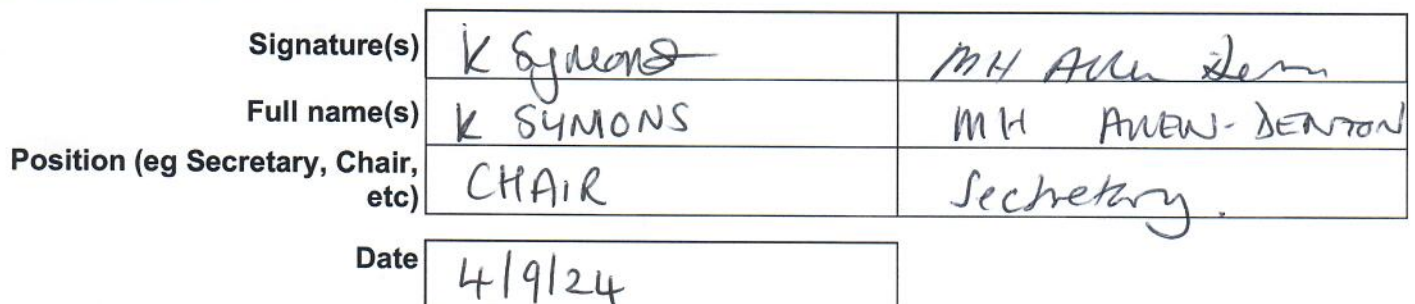 Signature(s) K Symons MH Allen Denton
Full name(s) K SYMONS MH ALLEN-DENTON
Position (eg Secretary, Chair,
etc) CHAIR Secretary.
Date 4/9/24